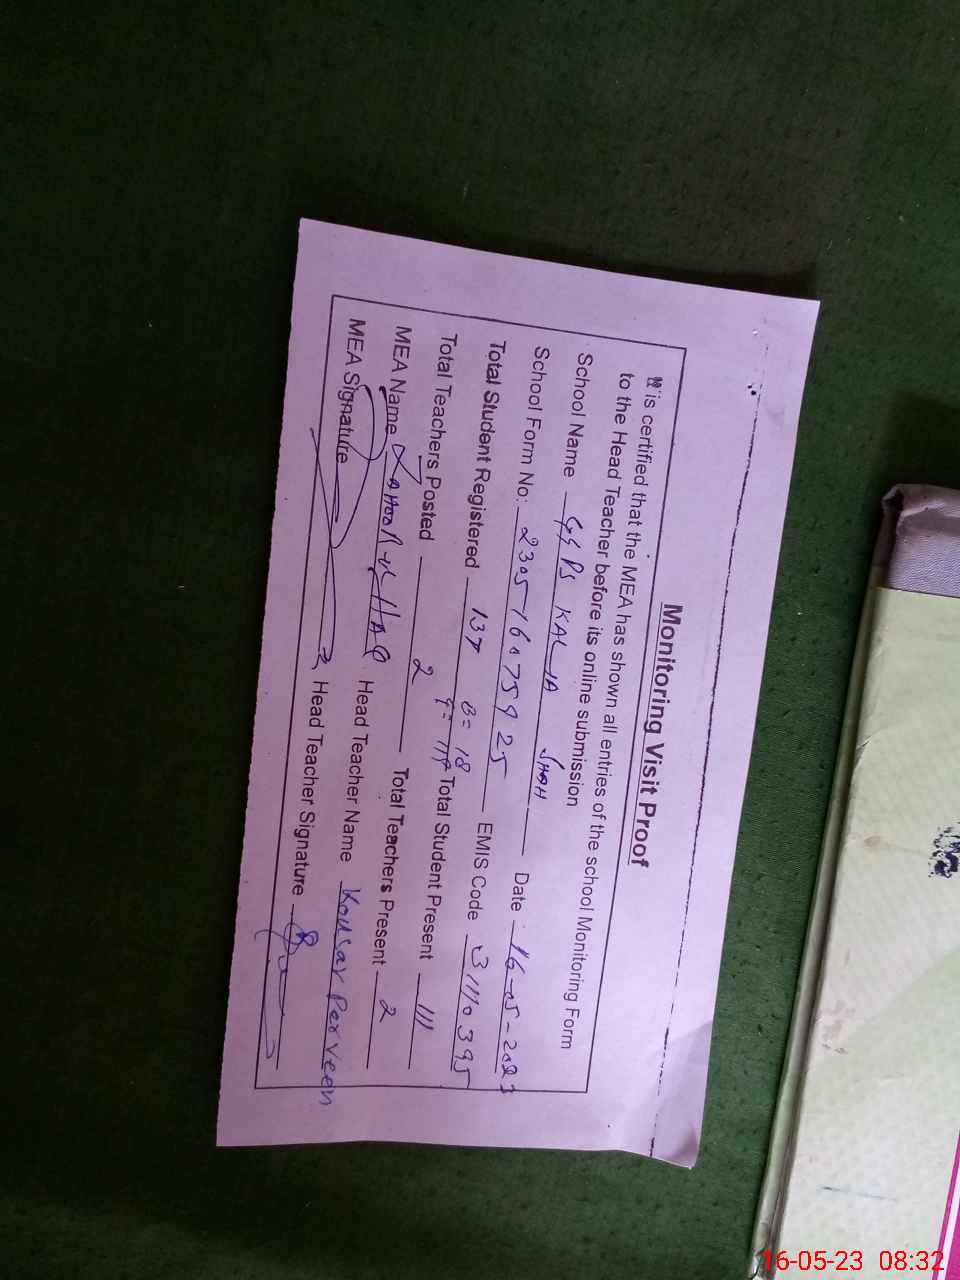 Monitoring Visit Proof
It is certified that the MEA has shown all entries of the school Monitoring Form
to the Head Teacher before its online submission
School Name GGPS KALIA SHAH Date 16-05-2023
School Form No: 230516075925 EMIS Code 31110395
Total Student Registered 137 B= 18 G= 119 Total Student Present 111
Total Teachers Posted 2 Total Teachers Present 2
MEA Name ZAHOOR-ul-HAQ Head Teacher Name Kousar Perveen
MEA Signature Head Teacher Signature
16-05-23 08:32